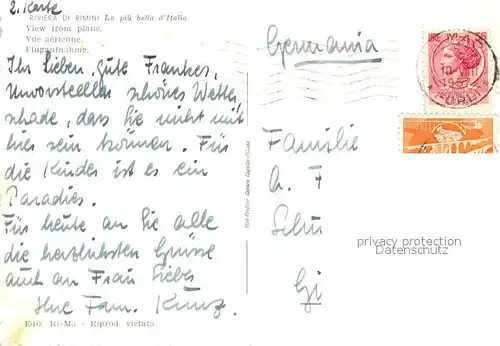 2. Karte
RIVIERA DI RIMINI La più bella d'Italia
View from plane.
Vue aérienne.
Flugaufnahme.
Germania
Ihr Lieben, gute Frankes,
Unvorstellbar schönes Wetter
schade, dass Sie nicht mit
hier sein können. Für
die Kinder ist es ein
Paradies.
Für heute an Sie alle
die herzlichsten Grüsse
auch an Frau Liebes
Ihre Fam. Kunz.
Ediz. Ri-Ma - Riprod. vietata
Familie
A. F
Schu
Gi
privacy protection
Datenschutz
FORLI